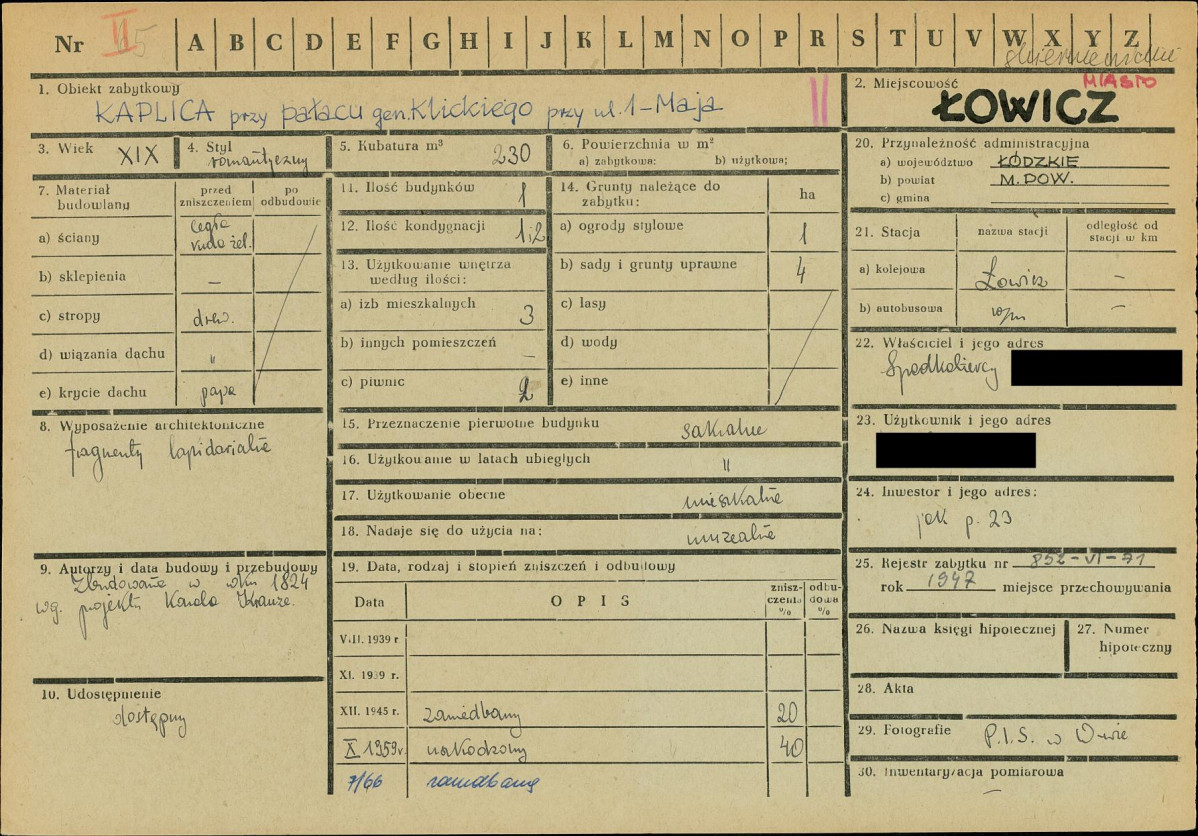 Nr II 15 A B C D E F G H I J K L M N O P R S T U V W X Y Z
skierniewickie
1. Obiekt zabytkowy
KAPLICA przy pałacu gen. Klickiego przy ul. 1-Maja
II
2. Miejscowość MIASTO
ŁOWICZ
3. Wiek XIX
4. Styl romantyczny
5. Kubatura m³ 230
6. Powierzchnia w m²
a) zabytkowa: b) użytkowa;
7. Materiał budowlany
przed zniszczeniem
po odbudowie
a) ściany cegła ruda żel.
b) sklepienia –
c) stropy drew.
d) wiązania dachu "
e) krycie dachu papa
8. Wyposażenie architektoniczne
fragmenty lapidarialne
9. Autorzy i data budowy i przebudowy
Zbudowana w roku 1824
wg. projektu Karola Krauze.
10. Udostępnienie
dostępny
11. Ilość budynków 1
12. Ilość kondygnacji 1i2
13. Użytkowanie wnętrza
według ilości:
a) izb mieszkalnych 3
b) innych pomieszczeń –
c) piwnic 2
14. Grunty należące do
zabytku: ha
a) ogrody stylowe 1
b) sady i grunty uprawne 4
c) lasy
d) wody
e) inne
15. Przeznaczenie pierwotne budynku sakralne
16. Użytkowanie w latach ubiegłych "
17. Użytkowanie obecne mieszkalne
18. Nadaje się do użycia na: muzealne
19. Data, rodzaj i stopień zniszczeń i odbudowy
Data OPIS zniszczenia % odbudowa %
VIII. 1939 r.
XI. 1939 r.
XII. 1945 r. zaniedbany 20
X 1959 r. uszkodzony 40
7/66 zaniedbany
20. Przynależność administracyjna
a) województwo ŁÓDZKIE
b) powiat M. POW.
c) gmina
21. Stacja nazwa stacji odległość od stacji w km
a) kolejowa Łowicz –
b) autobusowa wjm –
22. Właściciel i jego adres
Spadkobiercy
23. Użytkownik i jego adres
24. Inwestor i jego adres:
jak p. 23
25. Rejestr zabytku nr 852-VI-71
rok 1947 miejsce przechowywania
26. Nazwa księgi hipotecznej
27. Numer hipoteczny
28. Akta
29. Fotografie P.I.S. w W-wie
30. Inwentaryzacja pomiarowa
–